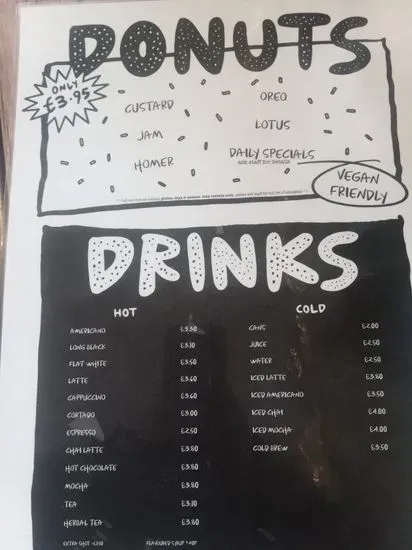 DONUTS
ONLY
£3.95
CUSTARD
OREO
JAM
LOTUS
HOMER
DAILY SPECIALS
ask staff for details
VEGAN
FRIENDLY
DRINKS
HOT
COLD
AMERICANO £3.30
LONG BLACK £3.10
FLAT WHITE £3.50
LATTE £3.60
CAPPUCCINO £3.60
CORTADO £3.00
ESPRESSO £2.50
CHAI LATTE £3.80
HOT CHOCOLATE £3.80
MOCHA £3.80
TEA £3.10
HERBAL TEA £3.80
CANS £2.00
JUICE £2.50
WATER £2.50
ICED LATTE £3.80
ICED AMERICANO £3.50
ICED CHAI £4.00
ICED MOCHA £4.00
COLD BREW £3.50
EXTRA SHOT
FLAVOURED SYRUP